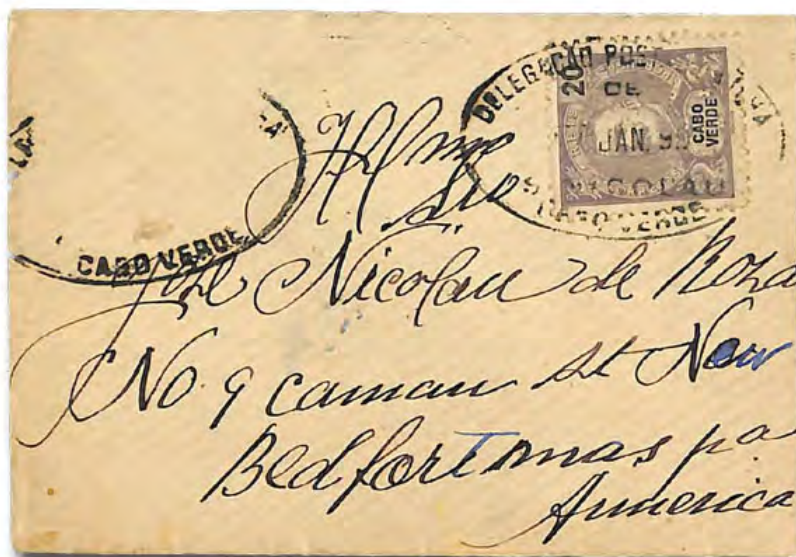 DELEGAÇÃO POST
DE
JAN. 9
CABO VERDE
20
CABO
VERDE
CABO VERDE
Illmo
Snr
José Nicolau de Roza
No 9 caman st New
Bedfortmas pa
Amnerica